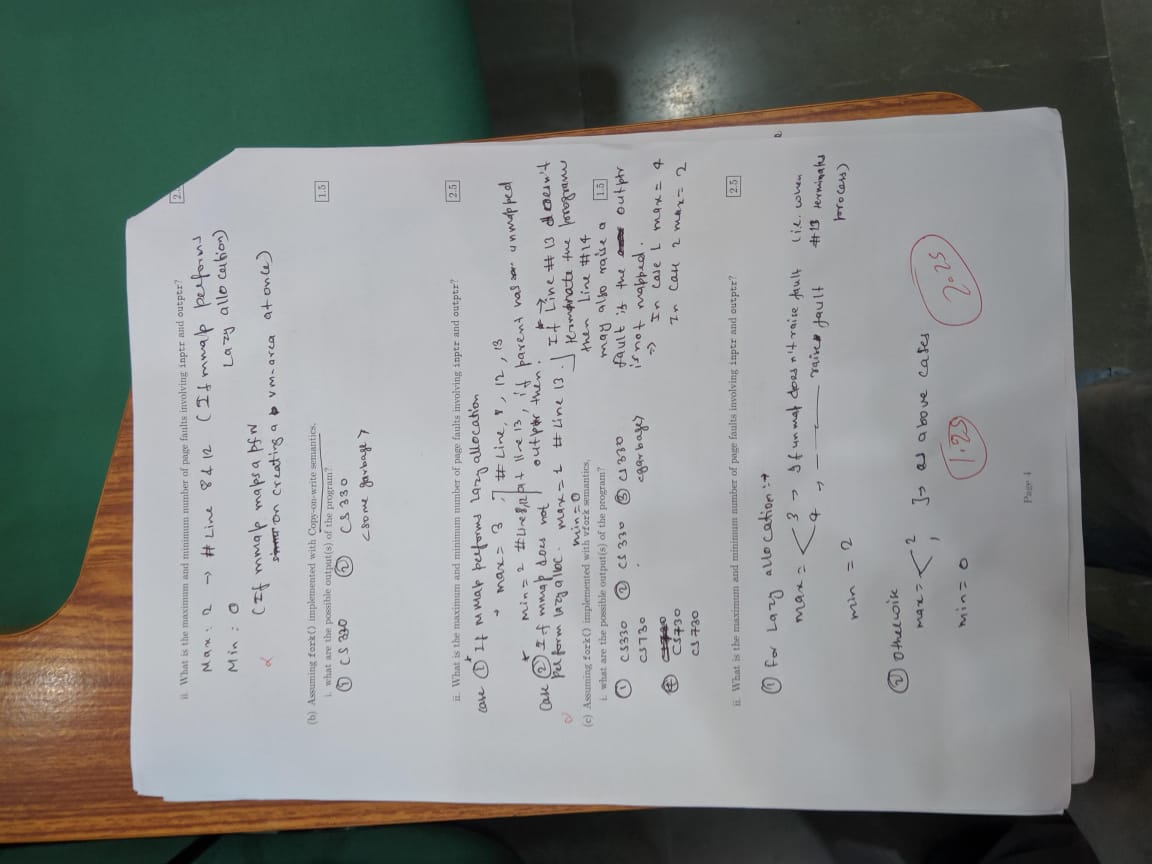 ii. What is the maximum and minimum number of page faults involving inptr and outptr?
Max: 2 → # Line 8 & 12 (If mmap performs
Lazy allocation)
Min : 0
(If mmap maps a pfn
on creating a vm-area at once)
(b) Assuming fork() implemented with Copy-on-write semantics,
i. what are the possible output(s) of the program?
1.5
① CS 330 ② CS 330
<some garbage>
ii. What is the maximum and minimum number of page faults involving inptr and outptr?
2.5
case ① If mmap performs Lazy allocation
→ max = 3 # Line, 8, 12, 13
min = 2 # Line 8,12 at line 13, if parent has unmapped
outptr then.
Case ② If mmap does not
perform lazy alloc. max = 1 # Line 13.
min = 0
If Line # 13 doesn't
terminate the program
then Line #14
may also raise a
fault if the outptr
is not mapped.
⇒ In case 1 max = 4
In case 2 max = 2
(c) Assuming fork() implemented with vfork semantics,
i. what are the possible output(s) of the program?
1.5
① CS330 ② CS 330 ③ CS 330
CS730 <garbage>
④ CS730
CS 730
ii. What is the maximum and minimum number of page faults involving inptr and outptr?
2.5
① For Lazy allocation :→
max = < 3 → If unmap doesn't raise fault (i.e. when
4 → raises fault #13 terminates
process)
min = 2
② Otherwise
max = < 2 ]→ as above cases
1
min = 0
1.25
2.25
Page 4